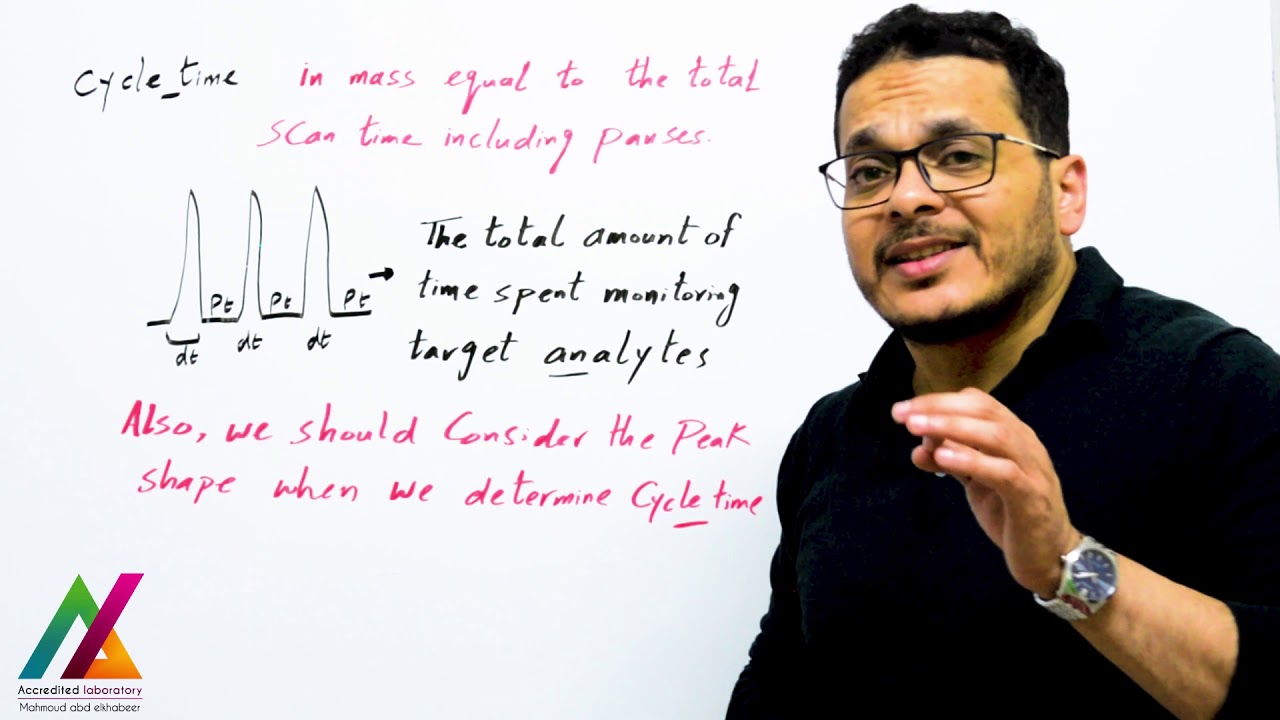 Cycle_time in mass equal to the total
scan time including pauses.
Pt Pt Pt
dt dt dt
The total amount of
time spent monitoring
target analytes
Also, we should Consider the Peak
shape when we determine Cycle time
Accredited laboratory
Mahmoud abd elkhabeer